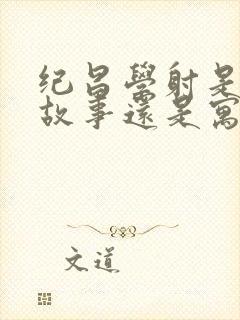 纪昌學射是
故事還是寓
文道